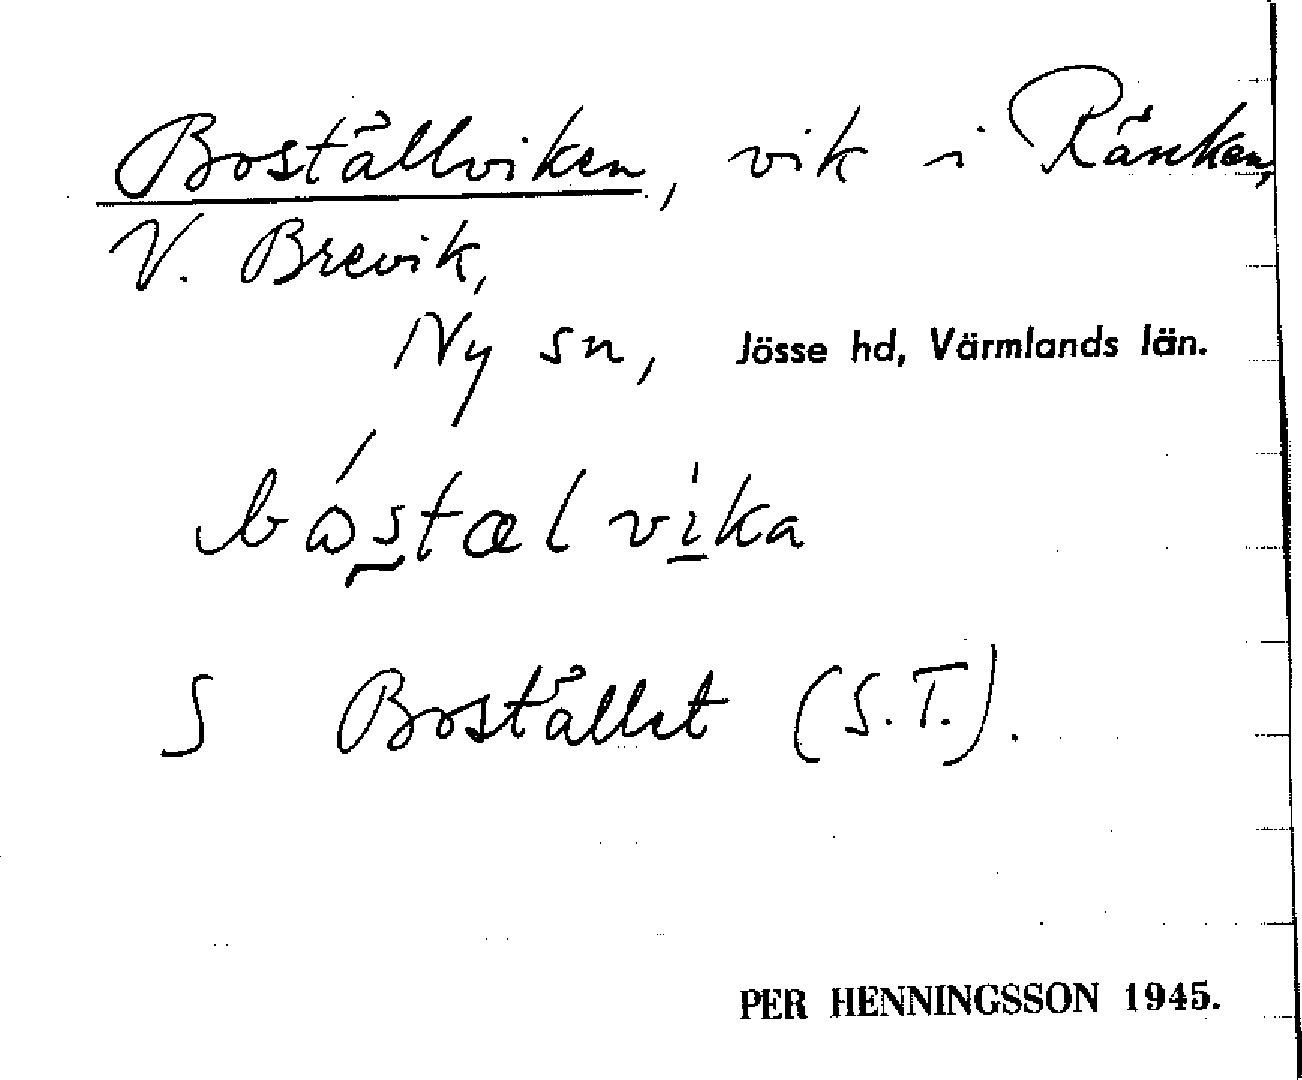 Boställviken, vik i Ränken,
V. Brevik,
Ny sn, Jösse hd, Värmlands län.
bóstælvika
S Bostället (S.T.).
PER HENNINGSSON 1945.